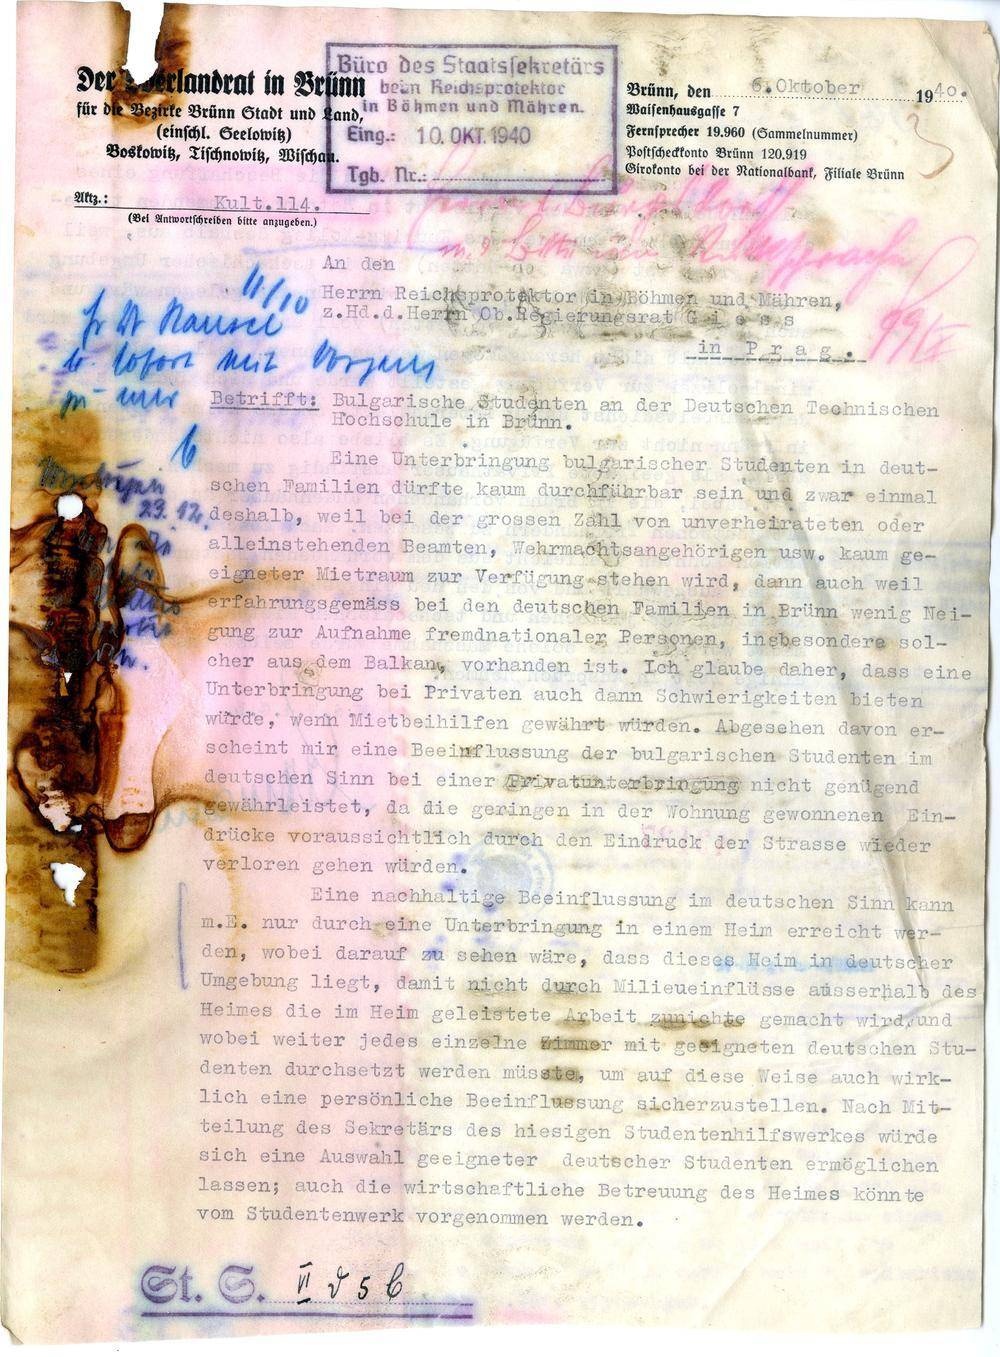 Der Oberlandrat in Brünn
für die Bezirke Brünn Stadt und Land,
(einschl. Seelowitz)
Boskowitz, Tischnowitz, Wischau.
Aktz.: Kult.114.
(Bei Antwortschreiben bitte anzugeben.)
Büro des Staatssekretärs
beim Reichsprotektor
in Böhmen und Mähren.
Eing.: 10. OKT. 1940
Tgb. Nr.:
Brünn, den 6. Oktober 1940.
Waisenhausgasse 7
Fernsprecher 19.960 (Sammelnummer)
Postscheckkonto Brünn 120.919
Girokonto bei der Nationalbank, Filiale Brünn
An den
Herrn Reichsprotektor in Böhmen und Mähren,
z.Hd.d.Herrn Ob.Regierungsrat G i e s s
in P r a g .
11/10
sofort mit Vorgang
zu mir
23.12.
Betrifft: Bulgarische Studenten an der Deutschen Technischen
Hochschule in Brünn.
Eine Unterbringung bulgarischer Studenten in deut-
schen Familien dürfte kaum durchführbar sein und zwar einmal
deshalb, weil bei der grossen Zahl von unverheirateten oder
alleinstehenden Beamten, Wehrmachtsangehörigen usw. kaum ge-
eigneter Mietraum zur Verfügung stehen wird, dann auch weil
erfahrungsgemäss bei den deutschen Familien in Brünn wenig Nei-
gung zur Aufnahme fremdnationaler Personen, insbesondere sol-
cher aus dem Balkan, vorhanden ist. Ich glaube daher, dass eine
Unterbringung bei Privaten auch dann Schwierigkeiten bieten
würde, wenn Mietbeihilfen gewährt würden. Abgesehen davon er-
scheint mir eine Beeinflussung der bulgarischen Studenten im
deutschen Sinn bei einer Privatunterbringung nicht genügend
gewährleistet, da die geringen in der Wohnung gewonnenen Ein-
drücke voraussichtlich durch den Eindruck der Strasse wieder
verloren gehen würden.
Eine nachhaltige Beeinflussung im deutschen Sinn kann
m.E. nur durch eine Unterbringung in einem Heim erreicht wer-
den, wobei darauf zu sehen wäre, dass dieses Heim in deutscher
Umgebung liegt, damit nicht durch Milieueinflüsse ausserhalb des
Heimes die im Heim geleistete Arbeit zunichte gemacht wird, und
wobei weiter jedes einzelne Zimmer mit geeigneten deutschen Stu-
denten durchsetzt werden müsste, um auf diese Weise auch wirk-
lich eine persönliche Beeinflussung sicherzustellen. Nach Mit-
teilung des Sekretärs des hiesigen Studentenhilfswerkes würde
sich eine Auswahl geeigneter deutscher Studenten ermöglichen
lassen; auch die wirtschaftliche Betreuung des Heimes könnte
vom Studentenwerk vorgenommen werden.
St. S. VI